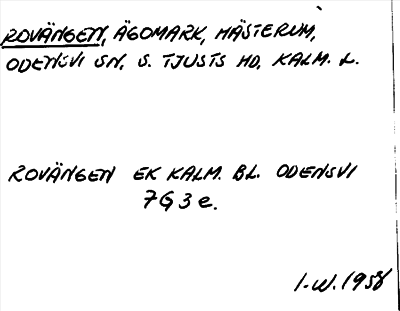 ROVÄNGEN, ÄGOMARK, MÄSTERUM,
ODENSVI SN, S. TJUSTS HD, KALM. L.
ROVÄNGEN EK KALM. BL. ODENSVI
7G3e.
I-W. 1958